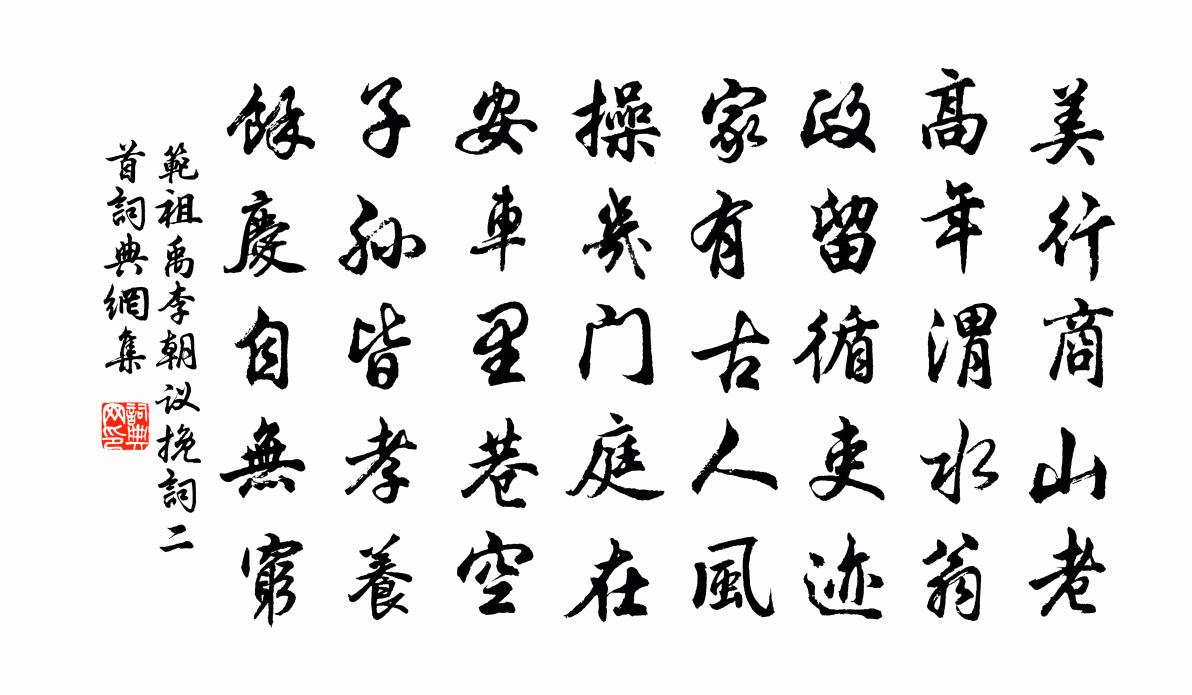 美行商山老
高年渭水翁
政留循吏迹
家有古人風
操幾門庭在
安車里巷空
子孫皆孝養
餘慶自無窮
範祖禹李朝议挽詞二
首詞典網集
詞典
网印